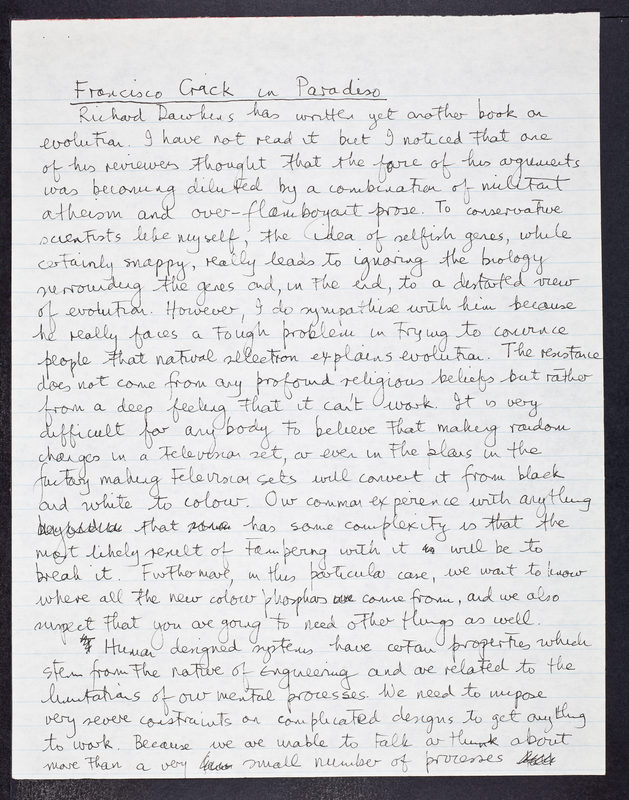 Francisco Crick in Paradiso
Richard Dawkins has written yet another book on
evolution. I have not read it but I noticed that one
of his reviewers thought that the force of his arguments
was becoming diluted by a combination of militant
atheism and over-flamboyant prose. To conservative
scientists like myself, the idea of selfish genes, while
certainly snappy, really leads to ignoring the biology
surrounding the genes and, in the end, to a distorted view
of evolution. However, I do sympathise with him because
he really faces a tough problem in trying to convince
people that natural selection explains evolution. The resistance
does not come from any profound religious beliefs but rather
from a deep feeling that it can't work. It is very
difficult for anybody to believe that making random
changes in a television set, or even in the plans in the
factory making television sets will convert it from black
and white to colour. Our common experience with anything
that has some complexity is that the
most likely result of tampering with it will be to
break it. Furthermore, in this particular case, we want to know
where all the new colour phosphors come from, and we also
suspect that you are going to need other things as well.
Human designed systems have certain properties which
stem from the nature of Engineering and are related to the
limitations of our mental processes. We need to impose
very severe constraints on complicated designs to get anything
to work. Because we are unable to talk or think about
more than a very small number of processes